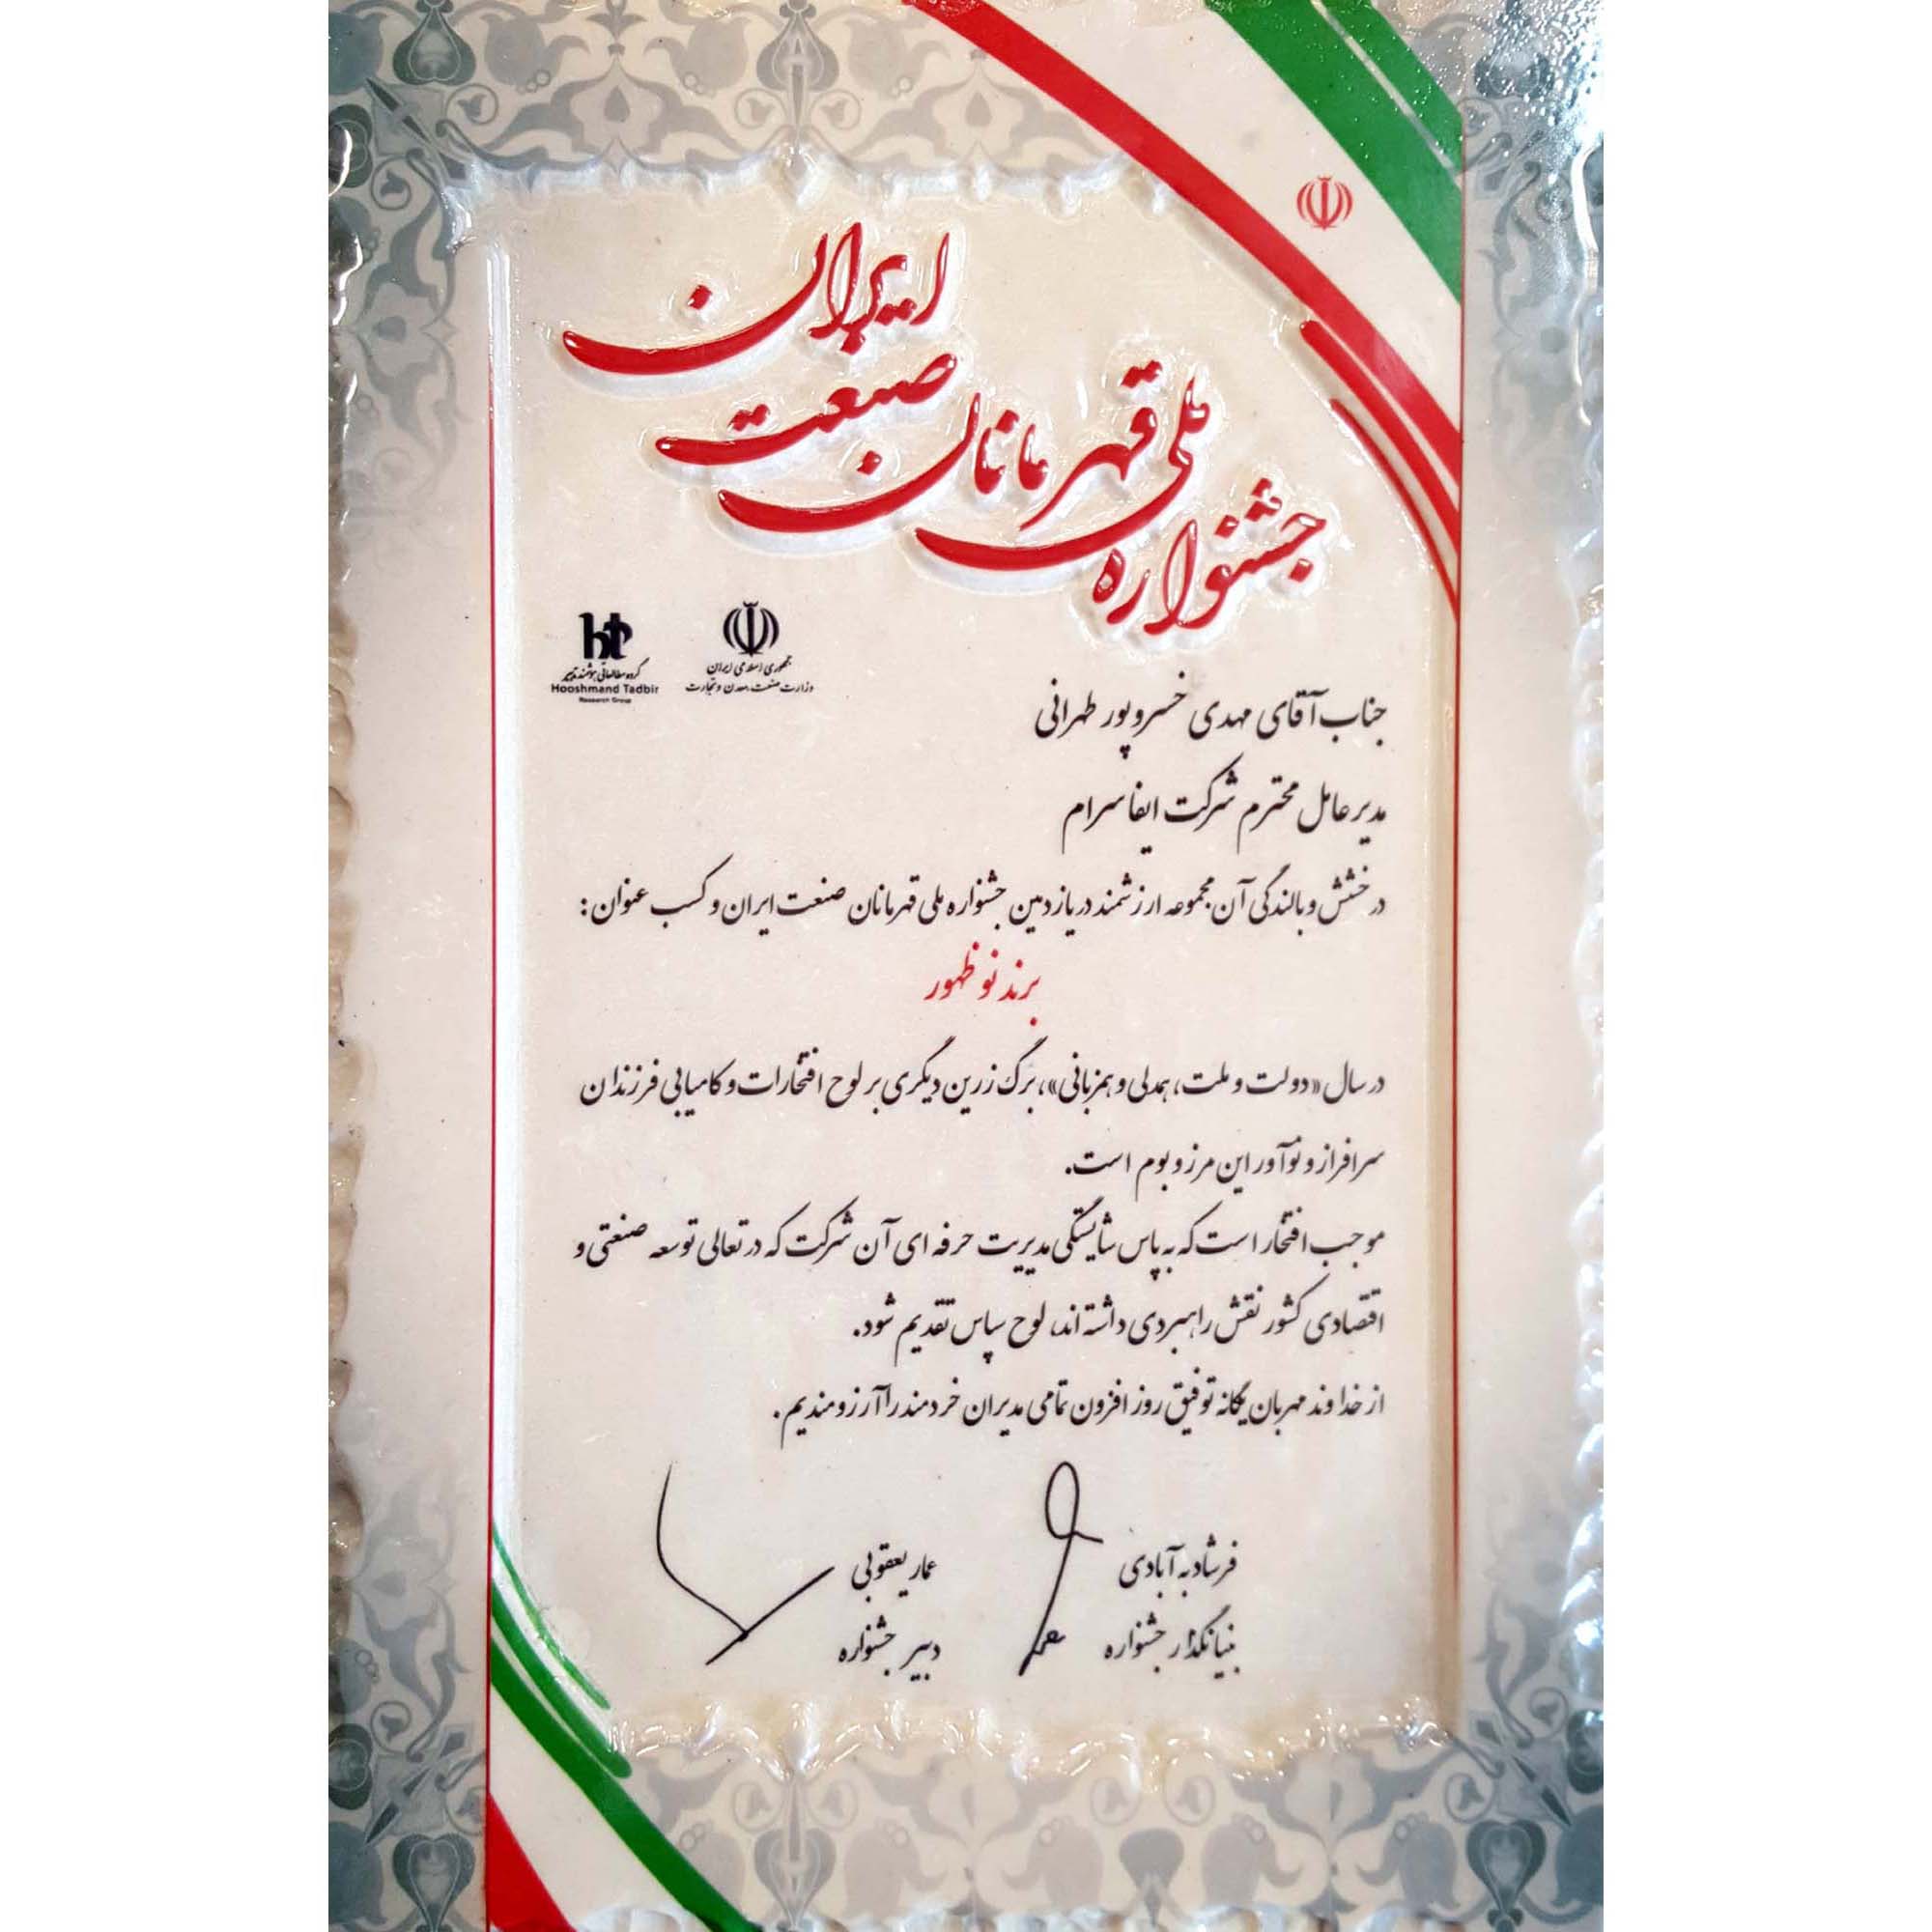 جشنواره ملی قهرمانان صنعت ایران
جمهوری اسلامی ایران
وزارت صنعت، معدن و تجارت
ht
گروه مطالعاتی هوشمند تدبیر
Hooshmand Tadbir
Research Group
جناب آقای مهدی خسروپور طهرانی
مدیر عامل محترم شرکت ایفا سرام
درخشش و بالندگی آن مجموعه ارزشمند در یازدمین جشنواره ملی قهرمانان صنعت ایران و کسب عنوان:
برند نو ظهور
در سال «دولت و ملت، همدلی و همزبانی»، برگ زرین دیگری بر لوح افتخارات و کامیابی فرزندان
سرافراز و نوآور این مرز و بوم است.
موجب افتخار است که به پاس شایستگی مدیریت حرفه ای آن شرکت که در تعالی توسعه صنعتی و
اقتصادی کشور نقش راهبردی داشته اند، لوح سپاس تقدیم شود.
از خداوند مهربان یگانه توفیق روز افزون تمامی مدیران خردمند را آرزومندیم.
فرشاد به آبادی
بنیانگذار جشنواره
عمار یعقوبی
دبیر جشنواره